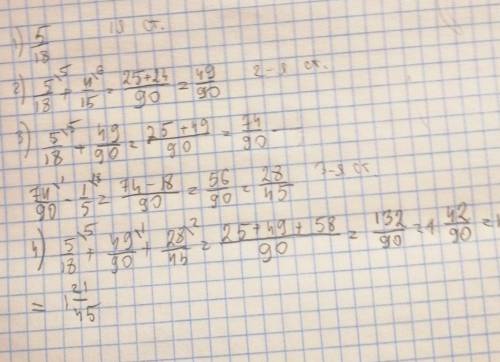 1) 5/18 1я ст.
2) 5\5/18 + 4\6/15 = 25+24/90 = 49/90 2-я ст.
3) 5\5/18 + 49/90 = 25+49/90 = 74/90
74\1/90 - 1\18/5 = 74-18/90 = 56/90 = 28/45 3-я ст.
4) 5\5/18 + 49\1/90 + 28\2/45 = 25+49+58/90 = 132/90 = 1 42/90 =
= 1 21/45